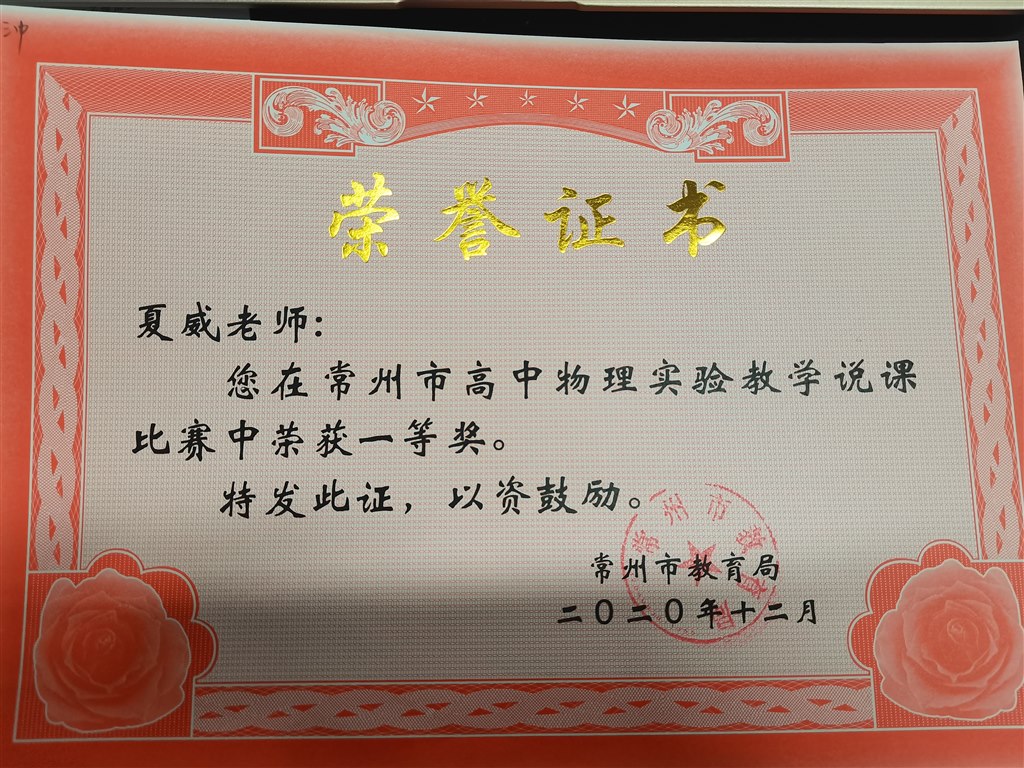 荣誉证书
夏威老师:
您在常州市高中物理实验教学说课
比赛中荣获一等奖。
特发此证，以资鼓励。
常州市教育局
常州市教育局
二〇二〇年十二月